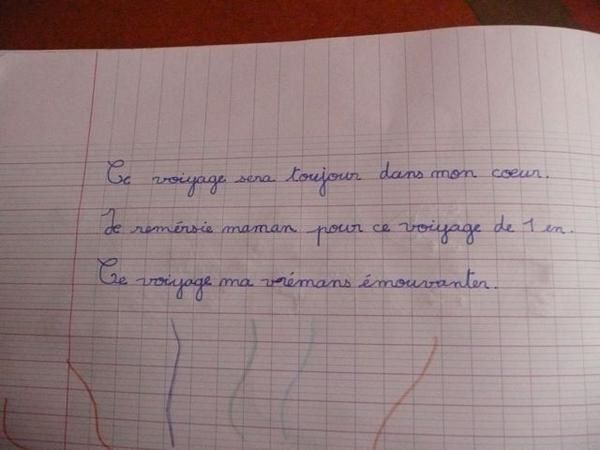 Ce voiyage sera toujour dans mon coeur.
Je remérsie maman pour ce voiyage de 1 en.
Ce voiyage ma vrémans émouvanter.